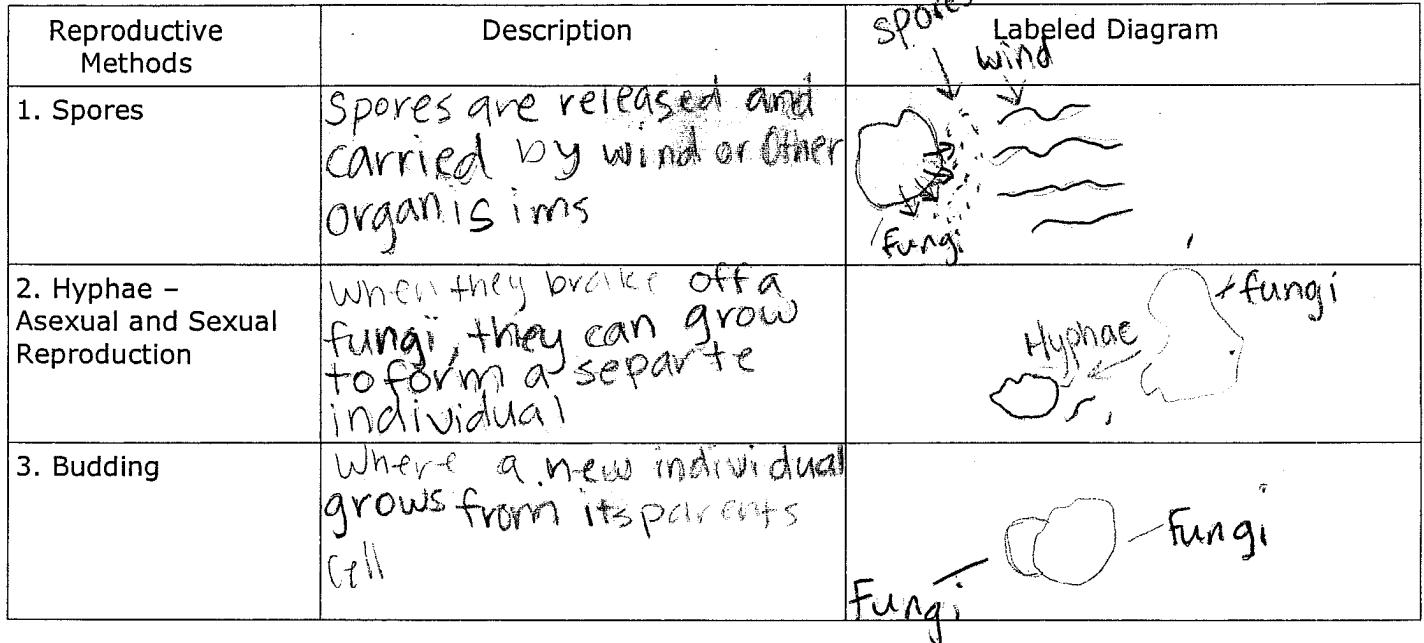 Reproductive
Methods
Description
Labeled Diagram
1. Spores
Spores are released and
carried by wind or Other
organisims
spores
wind
fungi
2. Hyphae –
Asexual and Sexual
Reproduction
When they brake off a
fungi, they can grow
to form a separte
individual
fungi
Hyphae
3. Budding
Where a new individual
grows from its parents
Cell
Fungi
Fungi